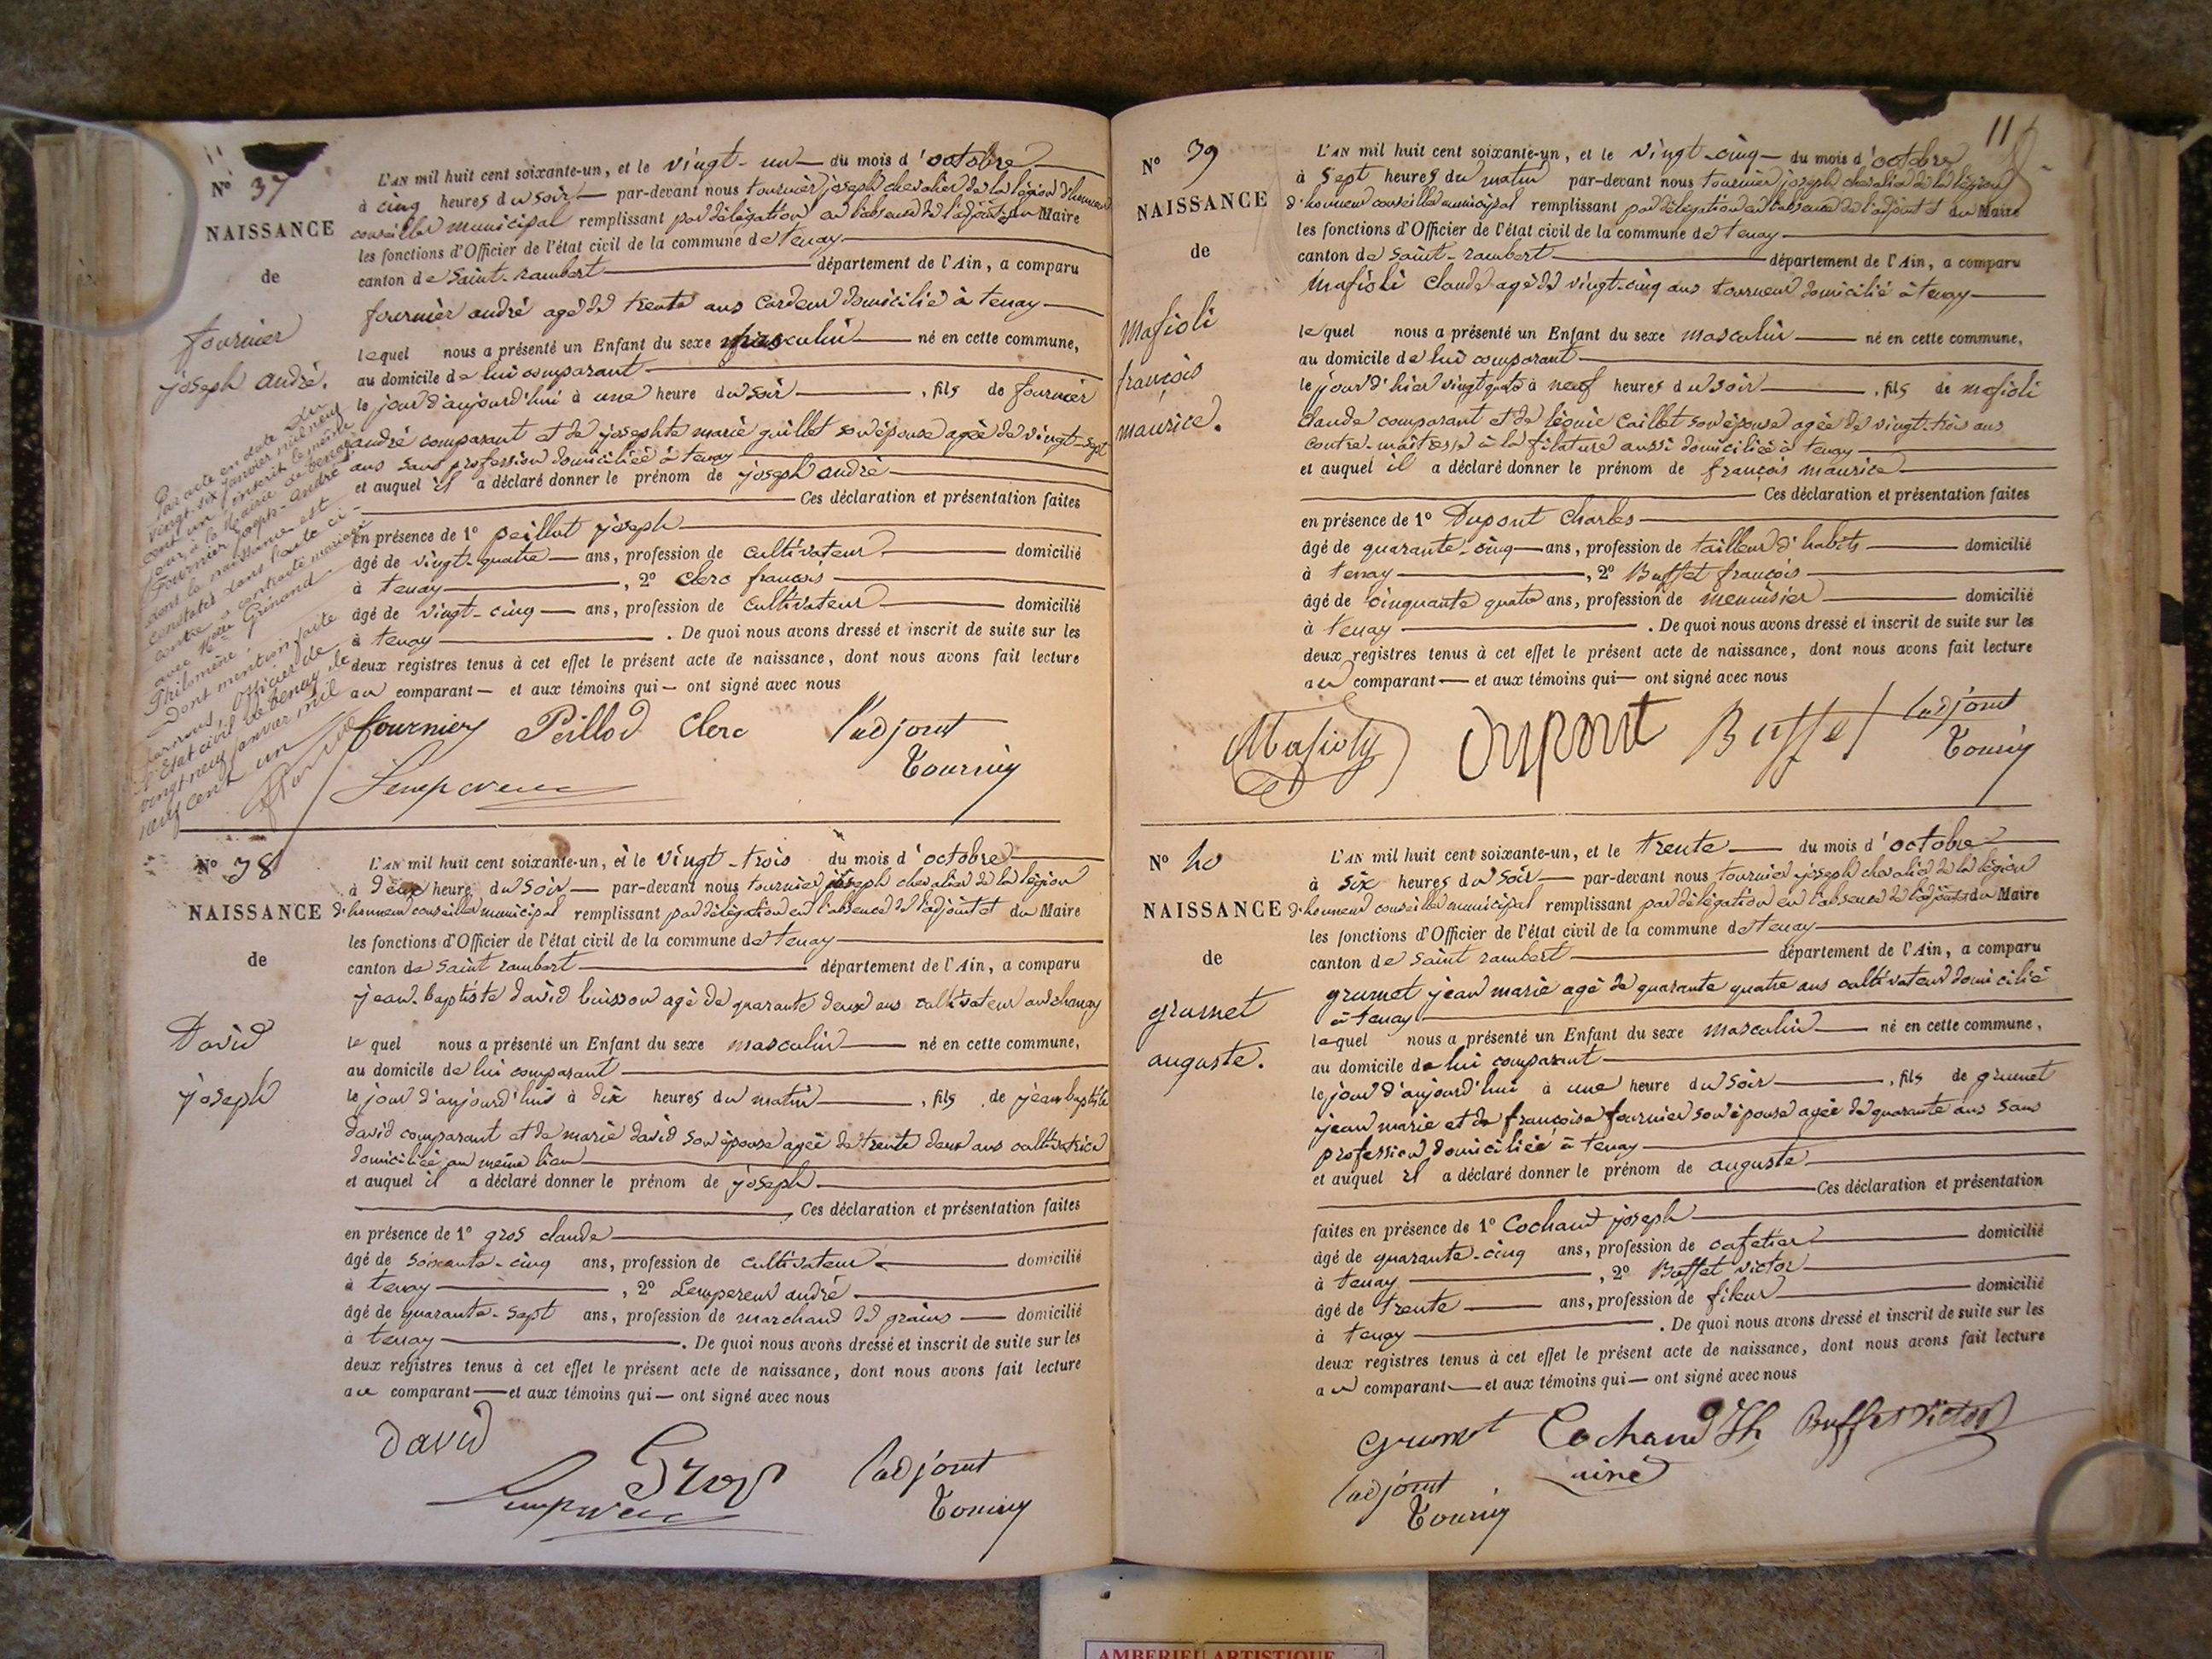 N° 37
NAISSANCE
de
fournier
joseph andré.
L'AN mil huit cent soixante-un, et le vingt-un du mois d'octobre
à cinq heures du soir par-devant nous tournier joseph chevalier de la légion d'honneur
conseiller municipal remplissant par délégation en l'absence de l'adjoint et du Maire
les fonctions d'Officier de l'état civil de la commune de tenay
canton de saint-rambert département de l'Ain, a comparu
fournier andré agé de trente ans cardeur domicilié à tenay
lequel nous a présenté un Enfant du sexe masculin né en cette commune,
au domicile de lui comparant
le jour d'aujourd'hui à une heure du soir, fils de fournier
andré comparant et de josephte marie guillet son épouse agée de vingt-sept
ans sans profession domiciliée à tenay
et auquel il a déclaré donner le prénom de joseph andré
Ces déclaration et présentation faites
en présence de 1° peillot joseph
âgé de vingt-quatre ans, profession de cultivateur domicilié
à tenay, 2° clerc françois
âgé de vingt-cinq ans, profession de cultivateur domicilié
à tenay. De quoi nous avons dressé et inscrit de suite sur les
deux registres tenus à cet effet le présent acte de naissance, dont nous avons fait lecture
au comparant et aux témoins qui ont signé avec nous
fournier Peillod Clerc l'adjoint
Tournier
Par acte en date du
vingt-six janvier mil neuf
cent un, inscrit le même
jour, à la Mairie de Tenay
Fournier Joseph-André
dont la naissance est
constatée dans l'acte ci-
contre a contracté mariage
avec Grinand
Philomène.
Dont mention faite
par nous, Officier de
l'état civil de Tenay, le
vingt neuf janvier mil
neuf cent un
N° 38
NAISSANCE
de
David
joseph
L'AN mil huit cent soixante-un, et le vingt-trois du mois d'octobre
à deux heure du soir par-devant nous tournier joseph chevalier de la légion
d'honneur conseiller municipal remplissant par délégation en l'absence de l'adjoint et du Maire
les fonctions d'Officier de l'état civil de la commune de tenay
canton de saint rambert département de l'Ain, a comparu
jean-baptiste david buisson agé de quarante deux ans cultivateur au chanay
lequel nous a présenté un Enfant du sexe masculin né en cette commune,
au domicile de lui comparant
le jour d'aujourd'hui à dix heures du matin, fils de jean baptiste
david comparant et de marie david son épouse agée de trente deux ans cultivatrice
domiciliée au même lieu
et auquel il a déclaré donner le prénom de joseph
Ces déclaration et présentation faites
en présence de 1° gros claude
âgé de soixante-cinq ans, profession de cultivateur domicilié
à tenay, 2° Lempereur andré
âgé de quarante-sept ans, profession de marchand de grains domicilié
à tenay. De quoi nous avons dressé et inscrit de suite sur les
deux registres tenus à cet effet le présent acte de naissance, dont nous avons fait lecture
au comparant et aux témoins qui ont signé avec nous
David
Gros l'adjoint
Tournier
11
N° 39
NAISSANCE
de
Mafioli
françois
maurice.
L'AN mil huit cent soixante-un, et le vingt-cinq du mois d'octobre
à sept heures du matin par-devant nous tournier joseph chevalier de la légion
d'honneur conseiller municipal remplissant par délégation en l'absence de l'adjoint et du Maire
les fonctions d'Officier de l'état civil de la commune de tenay
canton de saint-rambert département de l'Ain, a comparu
Mafioli claude agé de vingt-cinq ans tourneur domicilié à tenay
lequel nous a présenté un Enfant du sexe masculin né en cette commune,
au domicile de lui comparant
le jour d'hier vingt quatre à neuf heures du soir, fils de mafioli
claude comparant et de caillet son épouse agée de vingt-trois ans
contre-maîtresse à la filature aussi domiciliée à tenay
et auquel il a déclaré donner le prénom de françois maurice
Ces déclaration et présentation faites
en présence de 1° Dupont Charles
âgé de quarante-cinq ans, profession de tailleur d'habits domicilié
à tenay, 2° Buffet françois
âgé de cinquante quatre ans, profession de menuisier domicilié
à tenay. De quoi nous avons dressé et inscrit de suite sur les
deux registres tenus à cet effet le présent acte de naissance, dont nous avons fait lecture
au comparant et aux témoins qui ont signé avec nous
Mafioly Dupont Buffet l'adjoint
Tournier
N° 40
NAISSANCE
de
grumet
auguste.
L'AN mil huit cent soixante-un, et le trente du mois d'octobre
à six heures du soir par-devant nous tournier joseph chevalier de la légion
d'honneur conseiller municipal remplissant par délégation en l'absence de l'adjoint et du Maire
les fonctions d'Officier de l'état civil de la commune de tenay
canton de saint rambert département de l'Ain, a comparu
grumet jean marie agé de quarante quatre ans cultivateur domicilié
à tenay
lequel nous a présenté un Enfant du sexe masculin né en cette commune,
au domicile de lui comparant
le jour d'aujourd'hui à une heure du soir, fils de grumet
jean marie et de françoise fournier son épouse agée de quarante ans sans
profession domiciliée à tenay
et auquel il a déclaré donner le prénom de auguste
Ces déclaration et présentation
faites en présence de 1° Cochand joseph
âgé de quarante-cinq ans, profession de cafetier domicilié
à tenay, 2° Buffet victor
âgé de trente ans, profession de fileur domicilié
à tenay. De quoi nous avons dressé et inscrit de suite sur les
deux registres tenus à cet effet le présent acte de naissance, dont nous avons fait lecture
au comparant et aux témoins qui ont signé avec nous
Grumet Cochand Jh Buffet Victor
ainé
l'adjoint
Tournier
AMBERIEU ARTISTIQUE